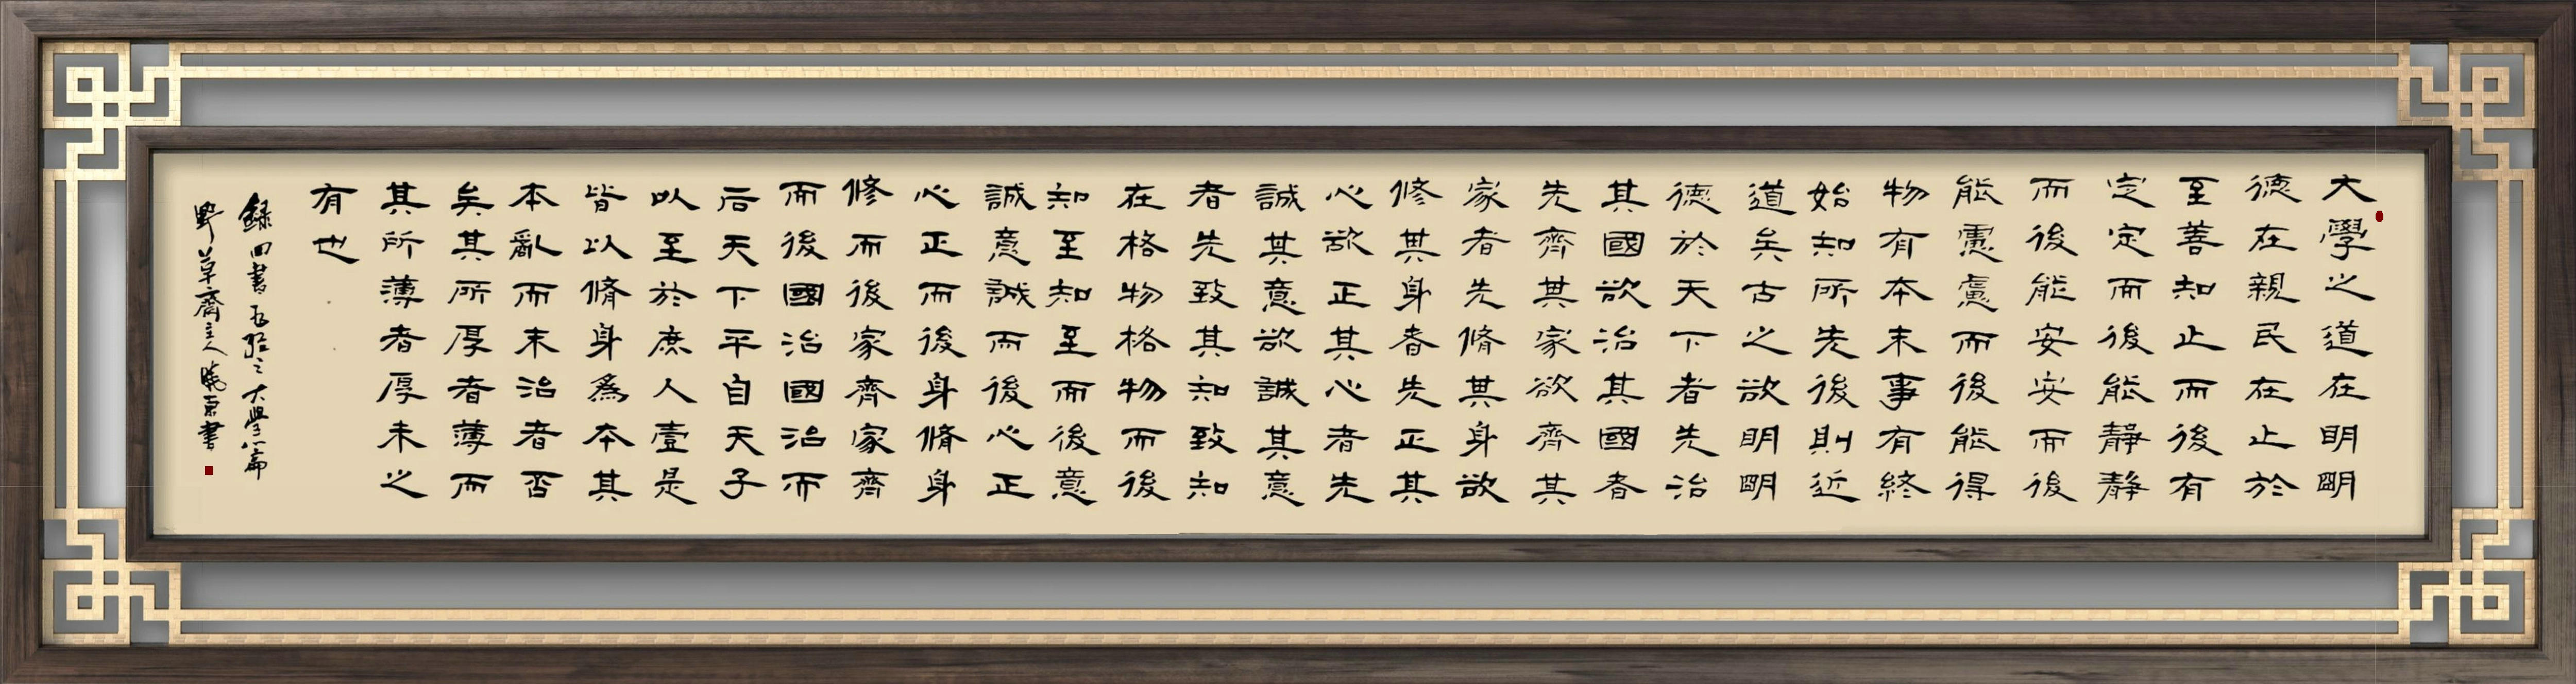 大學之道在明明
德在親民在止於
至善知止而後有
定定而後能靜靜
而後能安安而後
能慮慮而後能得
物有本末事有終
始知所先後則近
道矣古之欲明明
德於天下者先治
其國欲治其國者
先齊其家欲齊其
家者先脩其身欲
修其身者先正其
心欲正其心者先
誠其意欲誠其意
者先致其知致知
在格物格物而後
知至知至而後意
誠意誠而後心正
心正而後身脩身
修而後家齊家齊
而後國治國治而
后天下平自天子
以至於庶人壹是
皆以脩身爲本其
本亂而末治者否
矣其所厚者薄而
其所薄者厚未之
有也
錄四書五經之大學篇
野草齋主人書